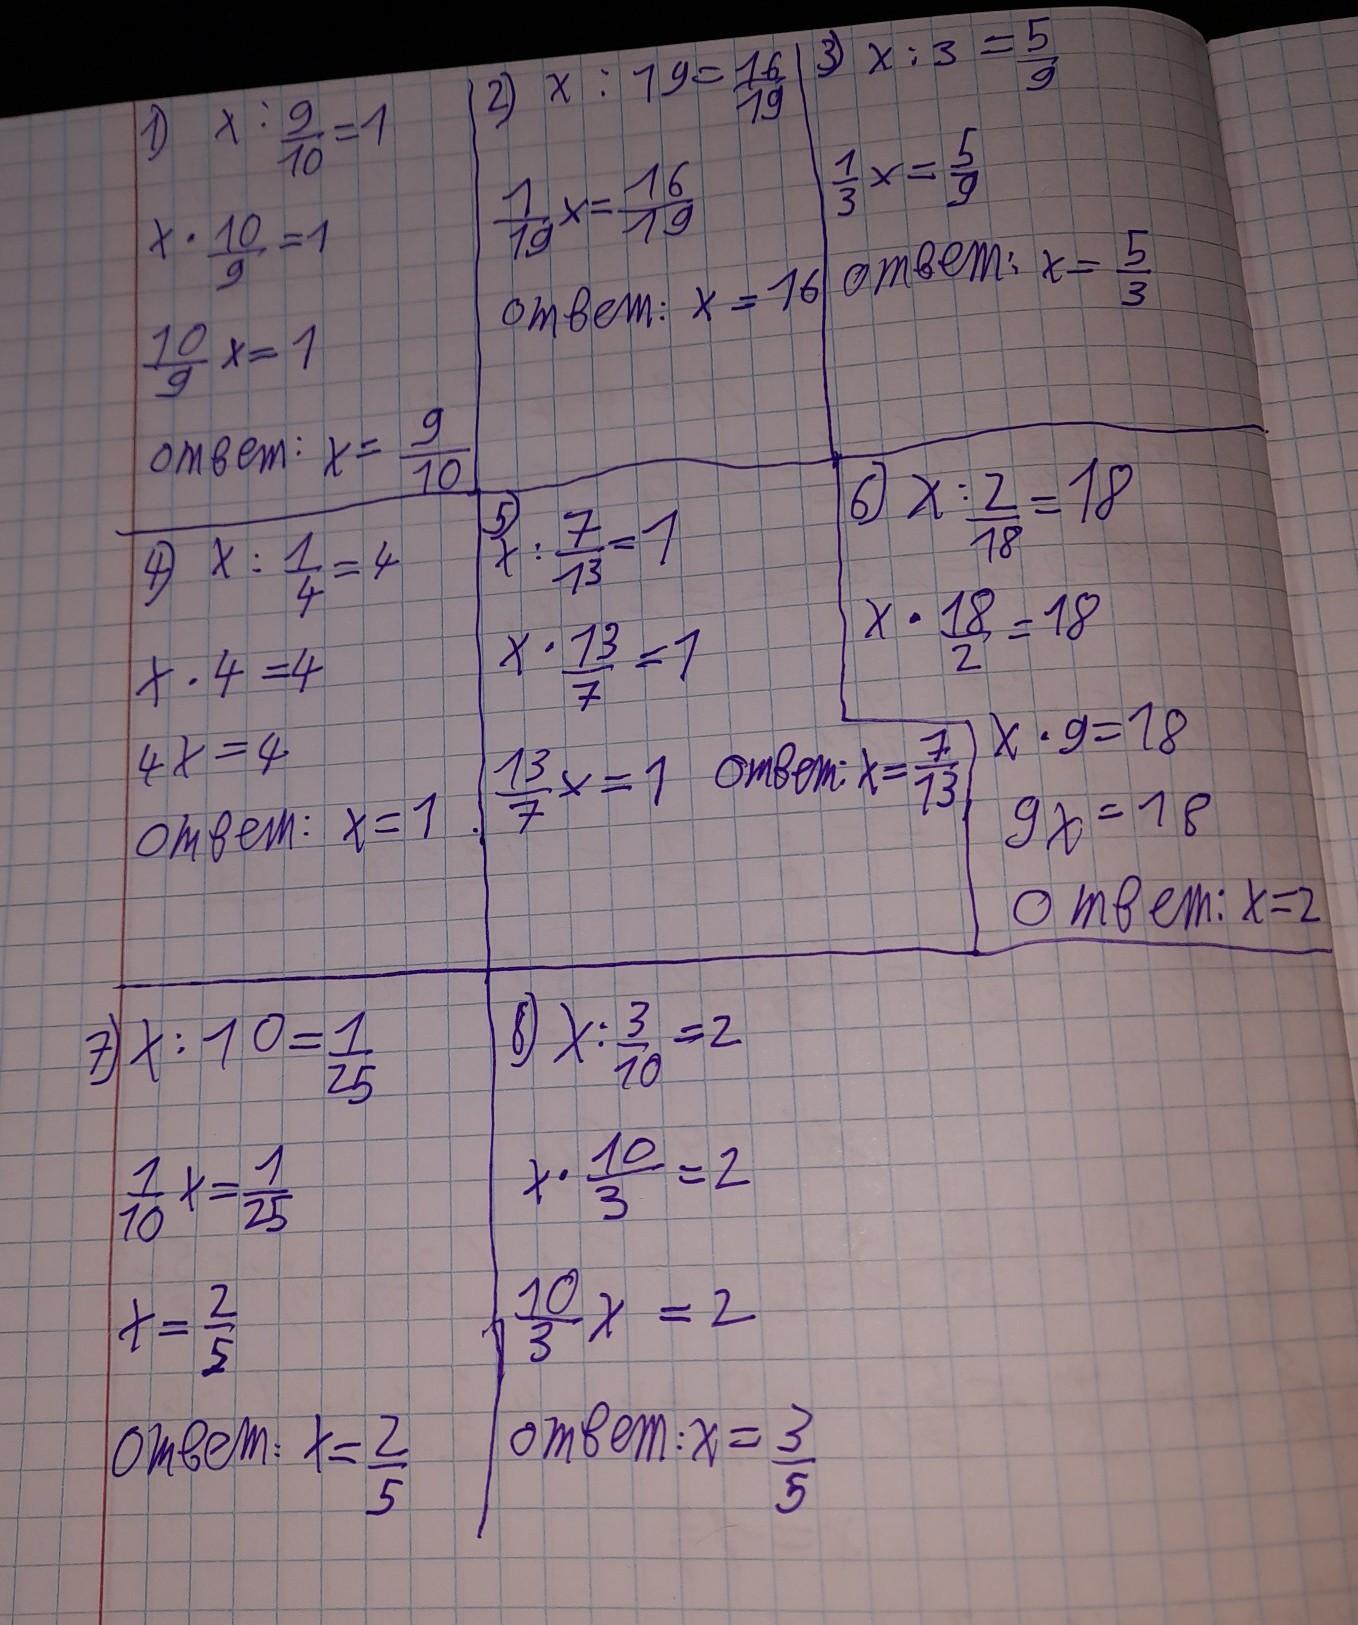 1) x : 9/10 = 1
x · 10/9 = 1
10/9 x = 1
ответ: x = 9/10
2) x : 19 = 16/19
1/19 x = 16/19
ответ: x = 16
3) x : 3 = 5/9
1/3 x = 5/9
ответ: x = 5/3
4) x : 1/4 = 4
x · 4 = 4
4x = 4
ответ: x = 1
5)
x : 7/13 = 1
x · 13/7 = 1
13/7 x = 1 ответ: x = 7/13
6) x : 2/18 = 18
x · 18/2 = 18
x · 9 = 18
9x = 18
ответ: x = 2
7) x : 10 = 1/25
1/10 x = 1/25
x = 2/5
ответ: x = 2/5
8) x : 3/10 = 2
x · 10/3 = 2
10/3 x = 2
ответ: x = 3/5